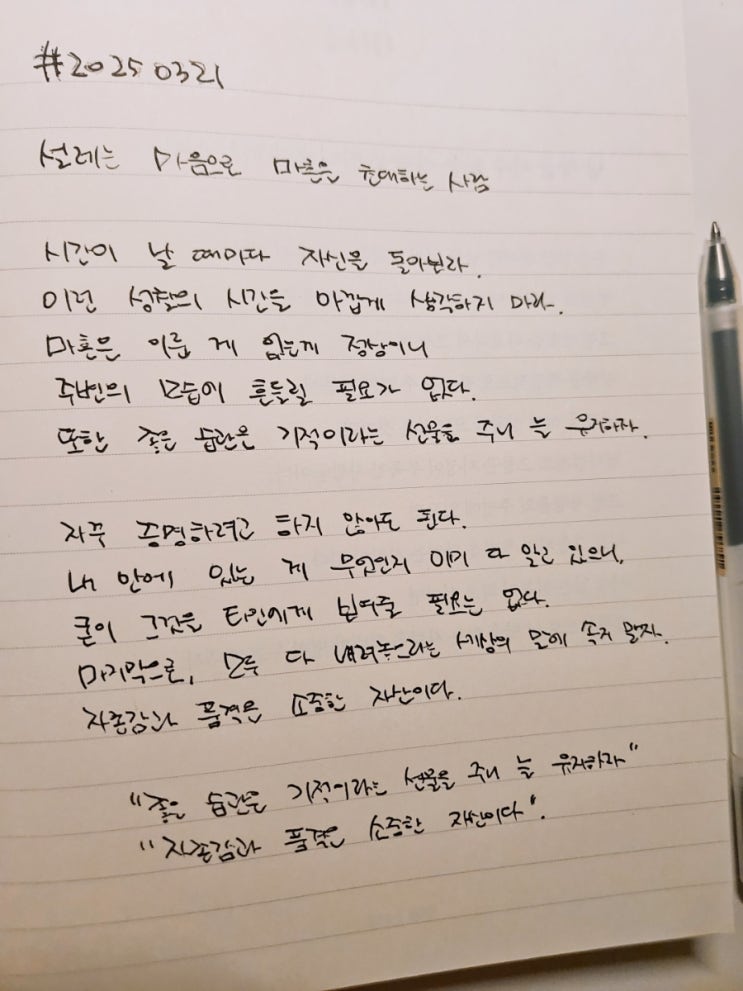 #20250321
설레는 마음으로 마흔을 초대하는 사람
시간이 날 때마다 자신을 돌아보라.
이런 성찰의 시간을 아깝게 생각하지 마라.
마흔은 이룬 게 없는게 정상이니
주변의 모습에 흔들릴 필요가 없다.
또한 좋은 습관은 기적이라는 선물을 주니 늘 유지하자.
자꾸 증명하려고 하지 않아도 된다.
내 안에 있는 게 무엇인지 이미 다 알고 있으니,
굳이 그것을 타인에게 보여줄 필요는 없다.
마지막으로, 모두 다 내려놓으라는 세상의 말에 속지 말자.
자존감과 품격은 소중한 자산이다.
"좋은 습관은 기적이라는 선물을 주니 늘 유지하라"
"자존감과 품격은 소중한 자산이다".